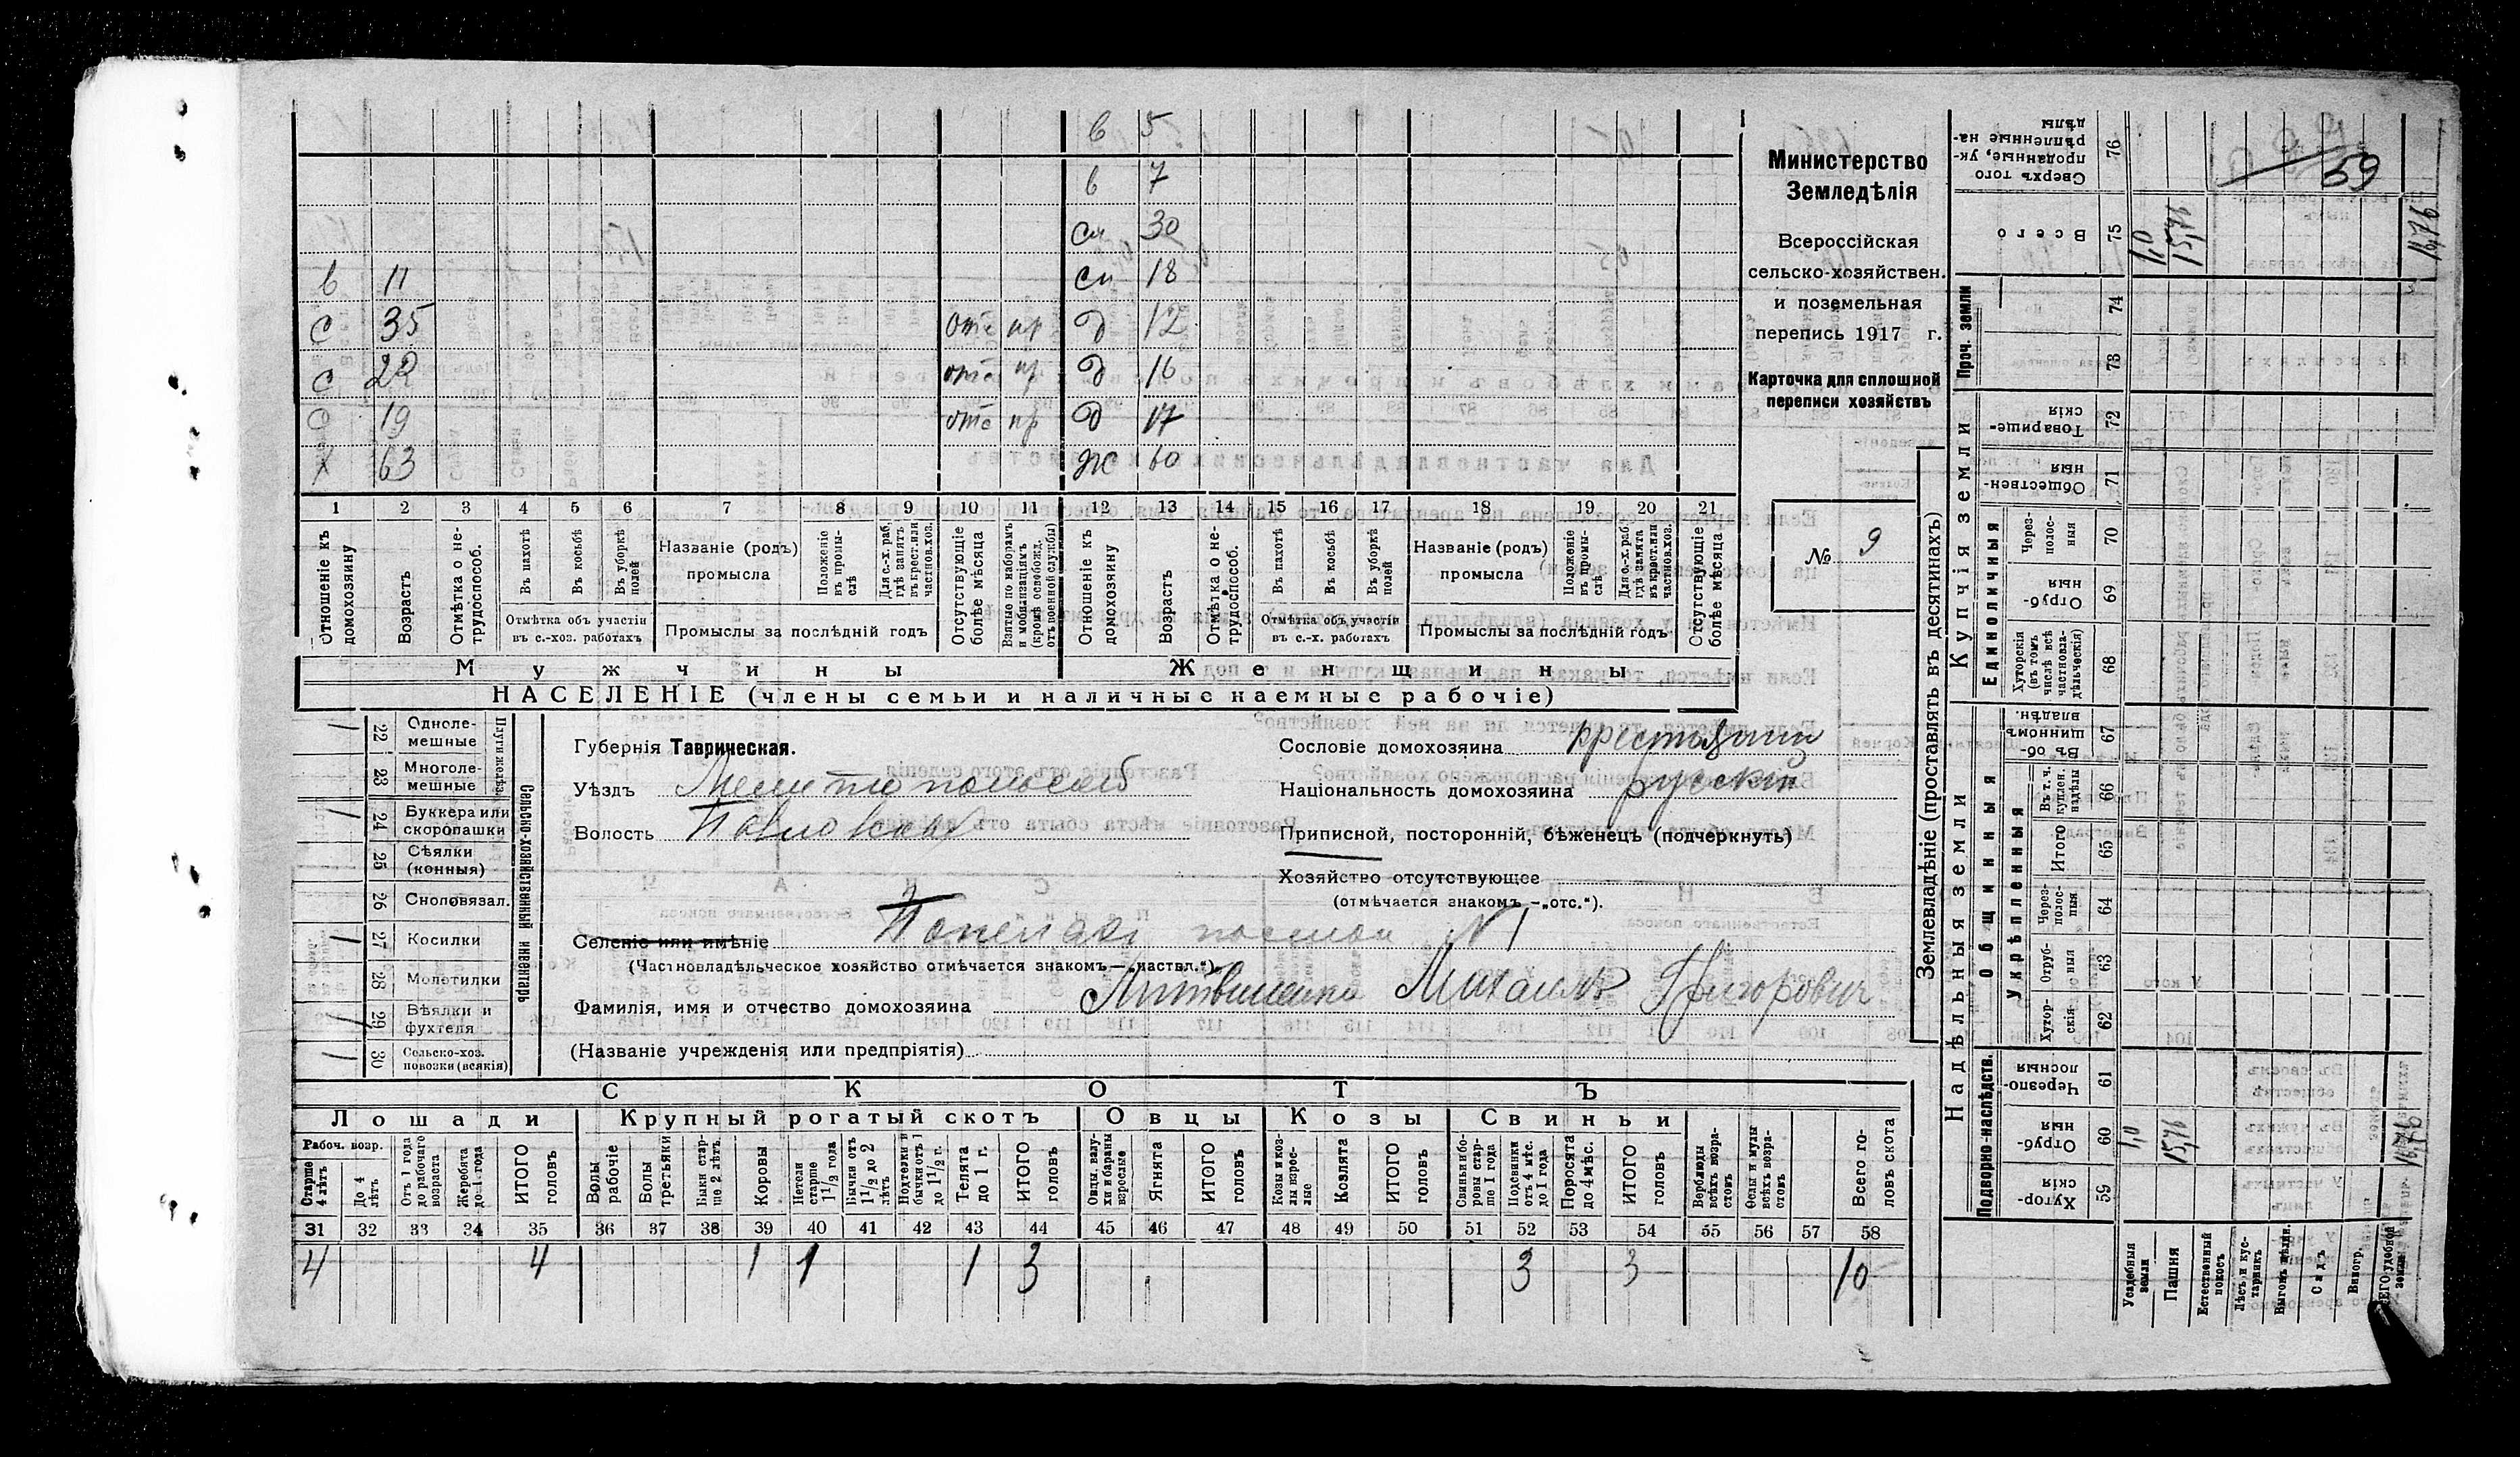 в 5
в 7
сн 30
в 11 сн 18
с 35 отс пр д 12
с 22 отс пр д 16
с 19 отс пр д 17
х 63 ж 60
1 2 3 4 5 6 7 8 9 10 11 12 13 14 15 16 17 18 19 20 21
Отношеніе къ домохозяину
Возрастъ
Отмѣтка о не-трудоспособ.
Въ пахотѣ
Въ косьбѣ
Въ уборкѣ полей
Отмѣтка объ участіи
въ с.-хоз. работахъ
Названіе (родъ)
промысла
Положеніе въ промы-слѣ
Для с.-х. раб. гдѣ занятъ въ крест. или частновл. хоз.
Промыслы за послѣдній годъ
Отсутствующіе болѣе мѣсяца
Взятые по наборамъ и мобилизаціямъ (кромѣ освобожд. отъ военной службы)
Отношеніе къ домохозяину
Возрастъ
Отмѣтка о не-трудоспособ.
Въ пахотѣ
Въ косьбѣ
Въ уборкѣ полей
Отмѣтка объ участіи
въ с.-х. работахъ
Названіе (родъ)
промысла
Положеніе въ промы-слѣ
Для с.-х. раб. гдѣ занята въ крест. или частновл. хоз.
Промыслы за послѣдній годъ
Отсутствующіе болѣе мѣсяца
Мужчины Женщины
НАСЕЛЕНІЕ (члены семьи и наличные наемные рабочіе)
Министерство
Земледѣлія
Всероссійская
сельско-хозяйствен.
и поземельная
перепись 1917 г.
Карточка для сплошной
переписи хозяйствъ
№ 9
Сельско-хозяйственный инвентарь
Плуги желѣз.
1 22 Одноле-мешные
23 Многоле-мешные
1 24 Буккера или скоропашки
25 Сѣялки (конныя)
26 Сноповязал.
1 27 Косилки
28 Молотилки
1 29 Вѣялки и фухтеля
1 30 Сельско-хоз. повозки (всякія)
Губернія Таврическая.
Уѣздъ Мелитопольскій
Волость Павловская
Селеніе или имѣніе поселок №1
(Частновладѣльческое хозяйство отмѣчается знакомъ—„частвл.“)
Фамилія, имя и отчество домохозяина Литвиненко Михаилъ Григорович
(Названіе учрежденія или предпріятія)
Сословіе домохозяина крестьянин
Національность домохозяина русскій
Приписной, посторонній, бѣженецъ (подчеркнуть)
Хозяйство отсутствующее
(отмѣчается знакомъ —„отс.“).
СКОТЪ
Лошади Крупный рогатый скотъ Овцы Козы Свиньи
Рабоч. возр.
Старше 4 лѣтъ
До 4 лѣтъ
Отъ 1 года до рабочаго возраста
Жеребята до 1 года
ИТОГО головъ
Волы рабочіе
Волы третьяки
Быки стар-ше 2 лѣтъ
Коровы
Нетели старше 1 1/2 года
Бычки отъ 1 1/2 до 2 лѣтъ
Подтелки и бычки отъ 1 до 1 1/2 г.
Телята до 1 г.
ИТОГО головъ
Овцы, валу-хи и бараны взрослые
Ягнята
ИТОГО головъ
Козы и коз-лы взрос-лые
Козлята
ИТОГО головъ
Свиньи и бо-ровы стар-ше 1 года
Подсвинки отъ 4 мѣс. до 1 года
Поросята до 4 мѣс.
ИТОГО головъ
Верблюды всѣхъ возра-стовъ
Ослы и мулы всѣхъ возра-стовъ
Всего го-ловъ скота
31 32 33 34 35 36 37 38 39 40 41 42 43 44 45 46 47 48 49 50 51 52 53 54 55 56 57 58
4 4 1 1 1 3 3 3 10
Землевладѣніе (проставлять въ десятинахъ)
Надѣльныя земли Купчія земли Проч. земли
Подворно-наслѣдств. Общинныя Единоличныя
Укрѣпленныя
Сверхъ того проданные, ук-рѣпленные на-дѣлы 76
Всего 75 0,4 15,51
74
73
Товарище-скія 72
Обществен-ныя 71
Через-полос-ныя 70
Отруб-ныя 69
Хуторскія (въ томъ числѣ всѣ частновла-дѣльческія) 68
Въ об-щинномъ владѣн. 67
Въ т. ч. куплен. надѣлы 66
Итого 65
Через-полос-ныя 64
Отруб-ныя 63
Хутор-скія 62
Черезпо-лосныя 61
Отруб-ныя 60 0,4
Хутор-скія 59
Усадебныя земли
Пашня
Естественный покосъ
Лѣсъ и кус-тарникъ
Садъ
Виногр.
59